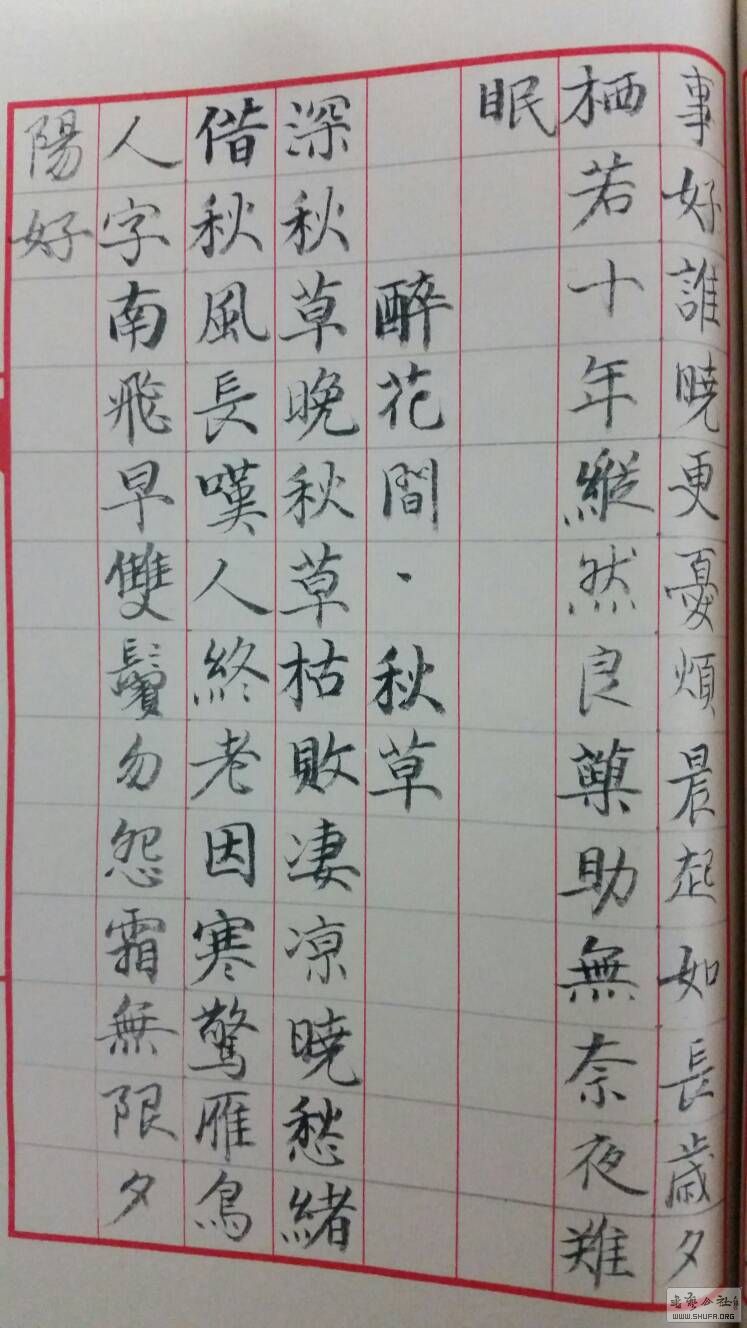 事好誰曉更憂煩晨起如長歲夕
栖若十年縱然良藥助無奈夜難
眠
醉花間·秋草
深秋草晚秋草枯敗凄凉曉愁緒
偕秋風長嘆人終老因寒驚雁鳥
人字南飛早雙鬢勿怨霜無限夕
陽好
WWW.SHUFA.ORG